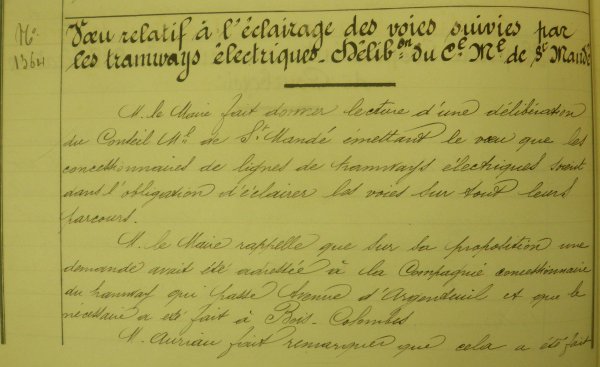 N°
1364
Vœu relatif à l'éclairage des voies suivies par
les tramways électriques. Délib.on du C.l M.l de St Mandé
M. le Maire fait donner lecture d'une délibération
du Conseil M.al de St Mandé émettant le vœu que les
concessionnaires de lignes de tramways électriques soient
dans l'obligation d'éclairer les voies sur tout leur
parcours.
M. le Maire rappelle que sur sa proposition une
demande avait été adressée à la Compagnie concessionnaire
du tramway qui passe Avenue d'Argenteuil et que le
nécessaire a été fait à Bois-Colombes
M. Auriau fait remarquer que cela a été fait